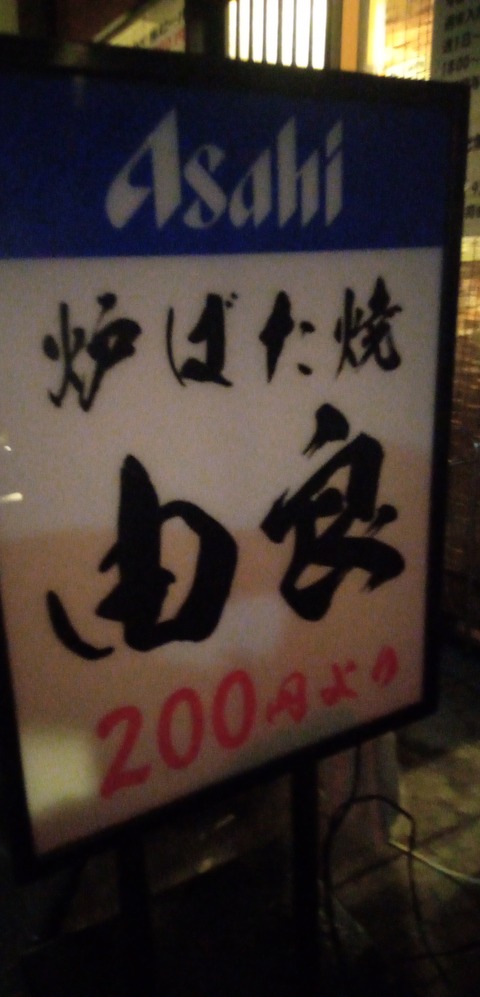 Asahi
炉ばた焼
由良
200円より